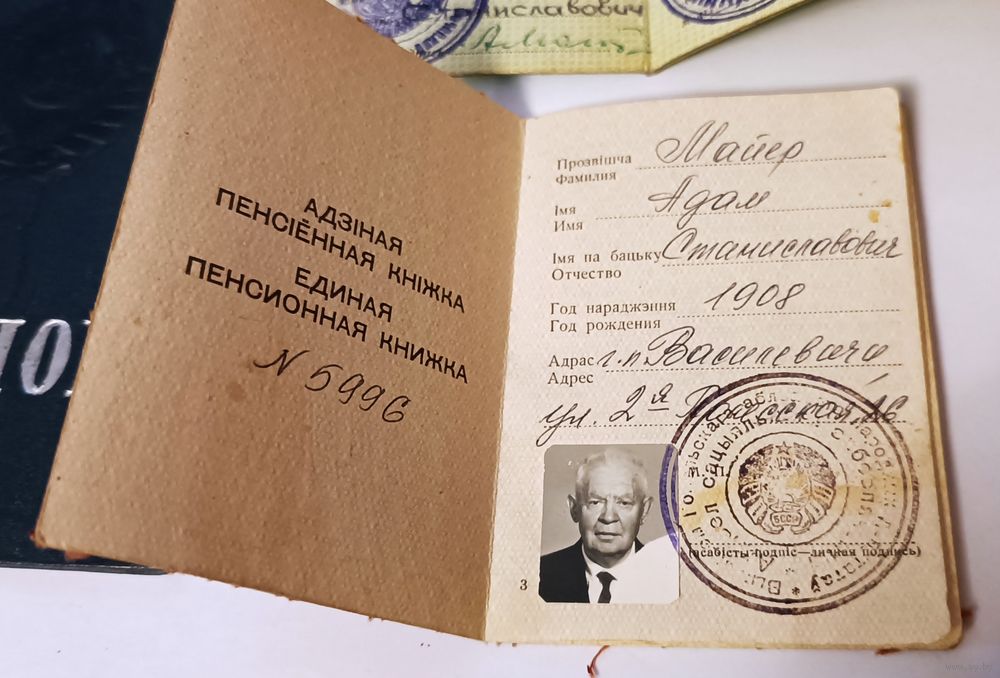 ниславович
АДЗІНАЯ
ПЕНСІЁННАЯ КНІЖКА
ЕДИНАЯ
ПЕНСИОННАЯ КНИЖКА
N 5996
Прозвішча Майер
Фамилия
Імя Адам
Имя
Імя на бацьку Станиславович
Отчество
Год нараджэння 1908
Год рождения
Адрас г.п Василевичи
Адрес
ул. 2я
М. П.
БССР
(асабісты подпіс—личная подпись)
3
www.ay.by